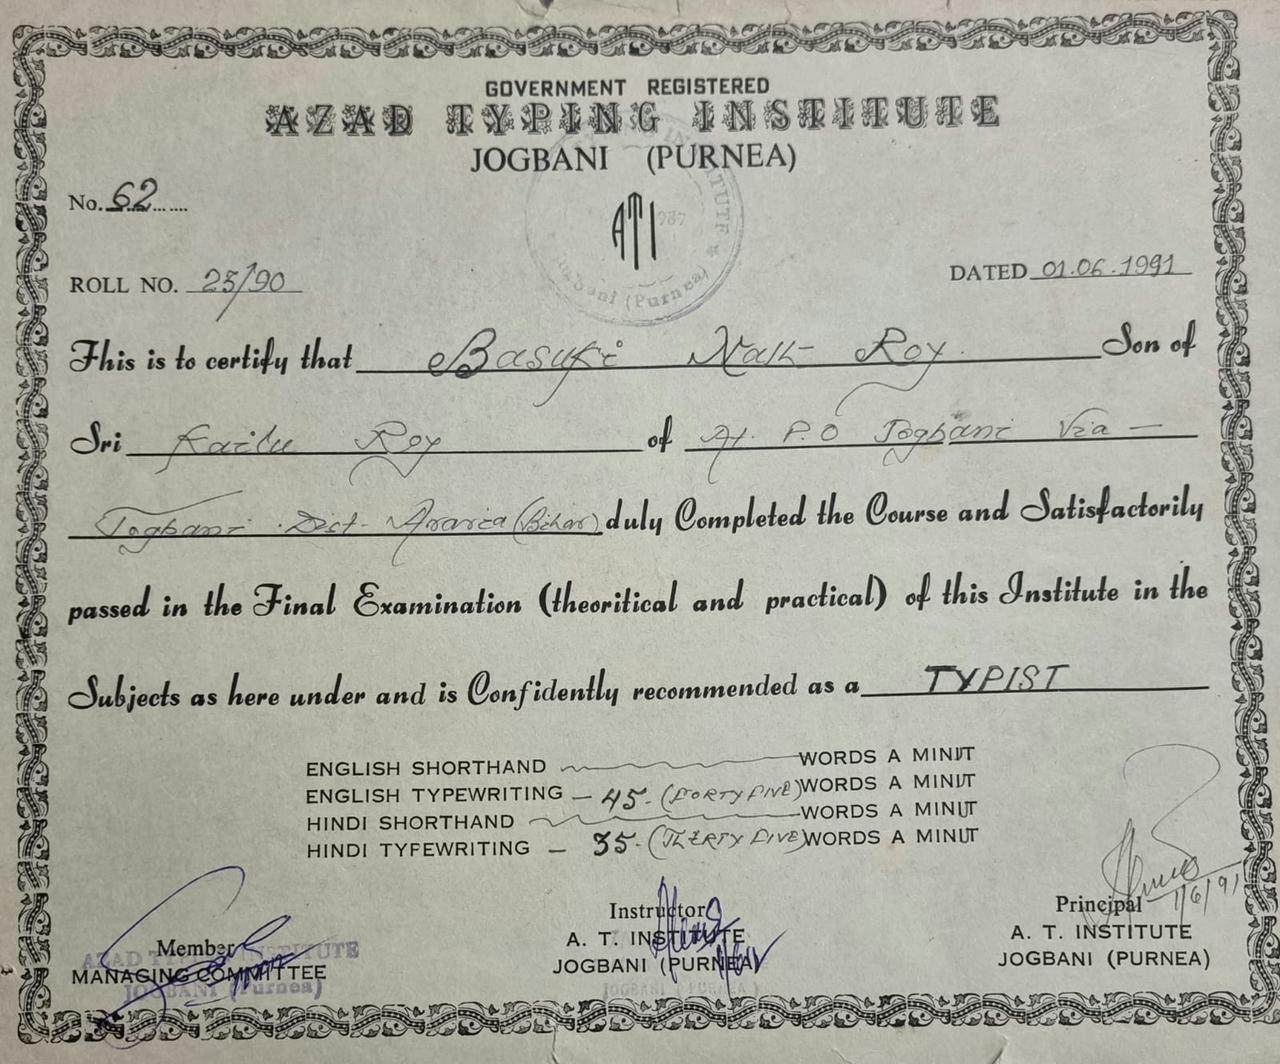 GOVERNMENT REGISTERED
AZAD TYPING INSTITUTE
JOGBANI (PURNEA)
No. 62
ATI
ROLL NO. 25/90
DATED 01.06.1991
This is to certify that Basuki Nath Roy. Son of
Sri Kailu Roy of At. P.O Jogbani Via —
Jogbani Dist- Araria (Bihar) duly Completed the Course and Satisfactorily
passed in the Final Examination (theoritical and practical) of this Institute in the
Subjects as here under and is Confidently recommended as a TYPIST
ENGLISH SHORTHAND WORDS A MINUT
ENGLISH TYPEWRITING — 45. (FORTY FIVE) WORDS A MINUT
HINDI SHORTHAND WORDS A MINUT
HINDI TYFEWRITING — 35. (THERTY FIVE) WORDS A MINUT
1/6/91
Member
MANAGING COMMITTEE
AZAD TYPING INSTITUTE
JOGBANI (Purnea)
Instructor
A. T. INSTITUTE
JOGBANI (PURNEA)
Principal
A. T. INSTITUTE
JOGBANI (PURNEA)